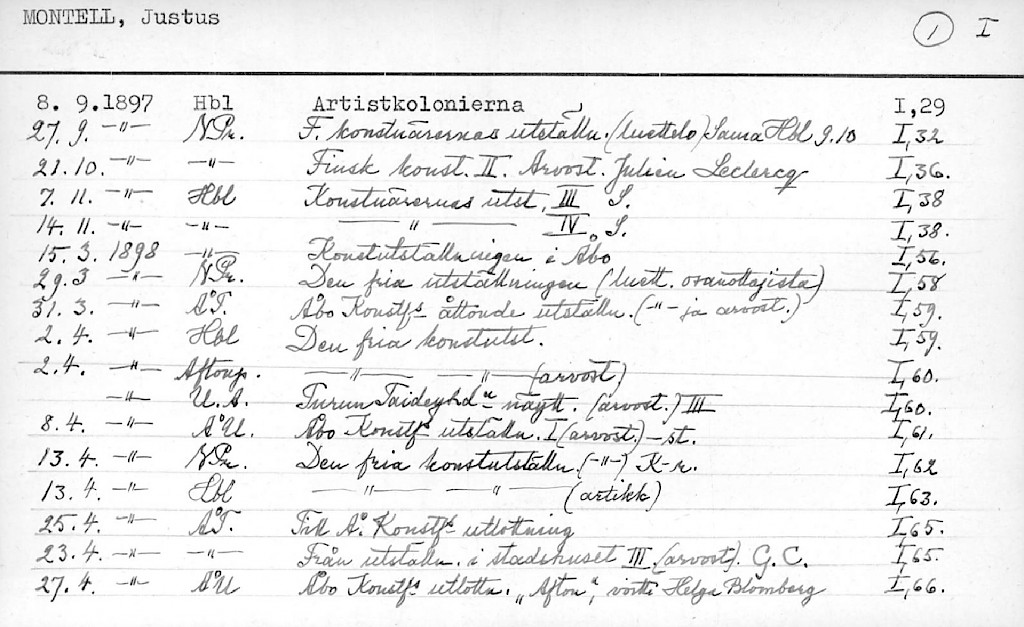 MONTELL, Justus 1 I
8. 9.1897 Hbl Artistkolonierna I,29
27.9. -"- N.Pr. F. konstnärernas utställn. (luettelo) Sama Hbl 9.10 I,32
21.10. -"- -"- Finsk konst. II. Arvost. Julien Leclercq I,36.
7. 11. -"- Hbl Konstnärernas utst. III S. I,38
14. 11. -"- -"- -"- IV. S. I,38.
15. 3. 1898 -"- Konstutställningen i Åbo I,56.
29.3 -"- N.Pr. Den fria utställningen (luett. osanottajista) I,58
31. 3. -"- Å.T. Åbo Konstfs åttonde utställn. (-"- ja arvost.) I,59.
2. 4. -"- Hbl Den fria konstutst. I,59.
2.4. -"- Aftonp. -"- -"- (arvost) I,60.
-"- U.A. Turun Taideyhd:n näytt. (arvost.) III I,60.
8.4. -"- Å.U. Åbo Konstfs utställn. I (arvost.) -st. I,61.
13.4. -"- N.Pr. Den fria konstutställn. (-"-) K-r. I,62
13.4. -"- Hbl -"- -"- (artikk) I,63.
25.4. -"- Å.T. Till Å. Konstfs utlottning I,65.
23.4. -"- -"- Från utställn. i stadshuset III (arvost). G.C. I,65
27.4. -"- Å.U Åbo Konstfs utlottn. „Afton", voitti Helga Blomberg I,66.